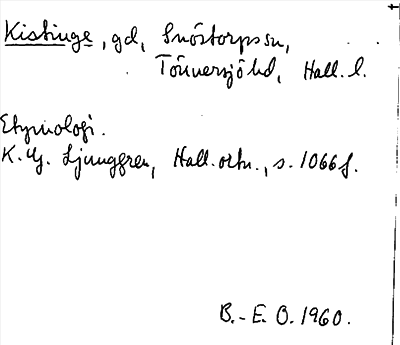 Kistinge, gd, Snöstorps sn,
Tönnersjö hd, Hall. l.
Etymologi.
K. G. Ljunggren, Hall. ortn., s. 1066 f.
B.-E. O. 1960.